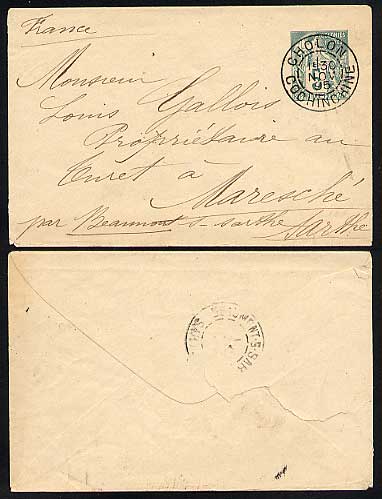 France
COLONIES
CHOLON
1E/30
NOV
95
COCHINCHINE
Monsieur
Louis Gallois
Propriétaire au
Turet à
Maresché
par Beaumont-s-sarthe Sarthe
MONT-S-SAR